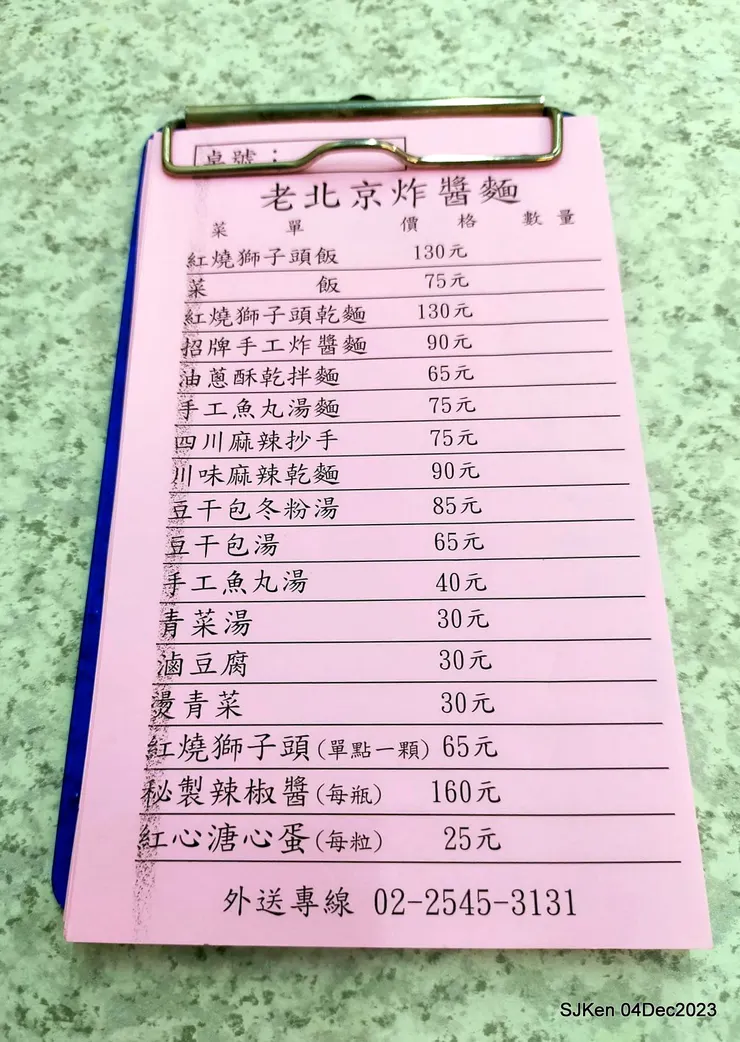 桌號：
老北京炸醬麵
菜 單 價 格 數 量
紅燒獅子頭飯 130元
菜 飯 75元
紅燒獅子頭乾麵 130元
招牌手工炸醬麵 90元
油蔥酥乾拌麵 65元
手工魚丸湯麵 75元
四川麻辣抄手 75元
川味麻辣乾麵 90元
豆干包冬粉湯 85元
豆干包湯 65元
手工魚丸湯 40元
青菜湯 30元
滷豆腐 30元
燙青菜 30元
紅燒獅子頭(單點一顆) 65元
秘製辣椒醬(每瓶) 160元
紅心溏心蛋(每粒) 25元
外送專線 02-2545-3131
SJKen 04Dec2023